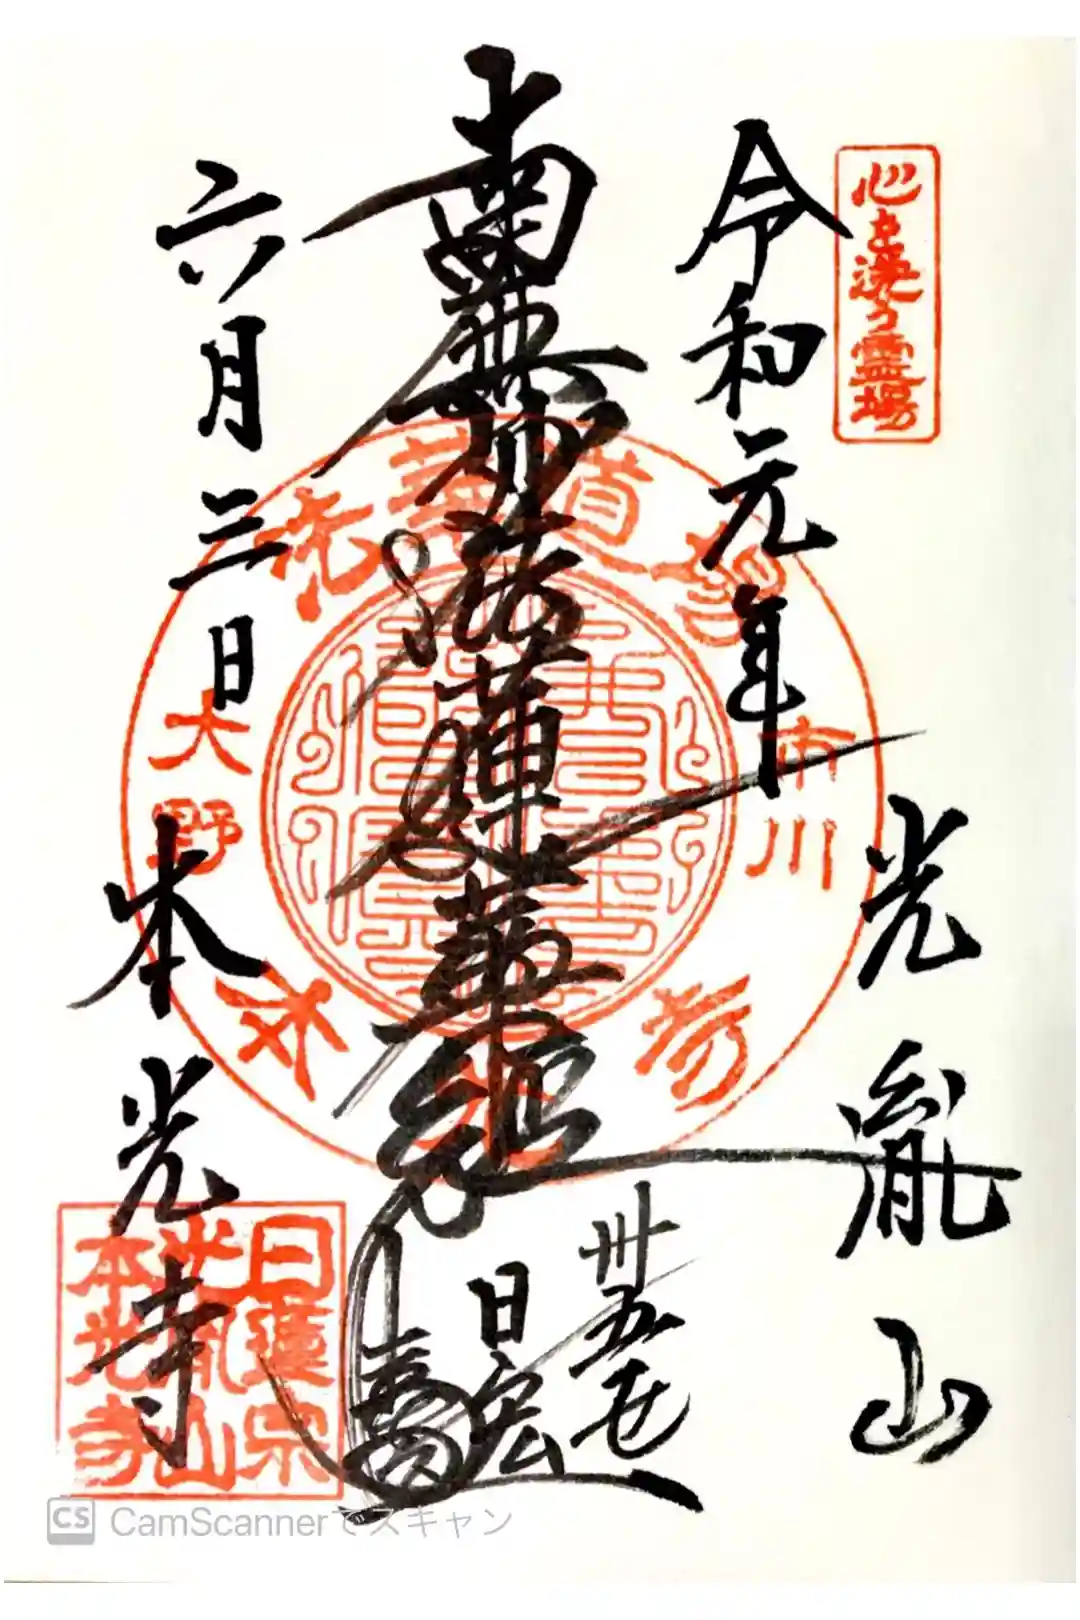 心を洗う霊場
令和元年
光胤山
南無妙法蓮華経
卅五世
日宏
六月三日
本光寺
市川
大野
日蓮宗
光胤山
本光寺
CS CamScannerでスキャン